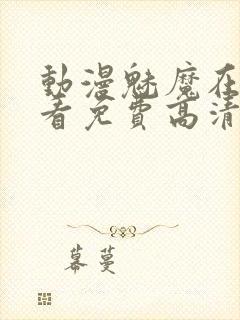 動漫魅魔在
看免費高清
幕蔓